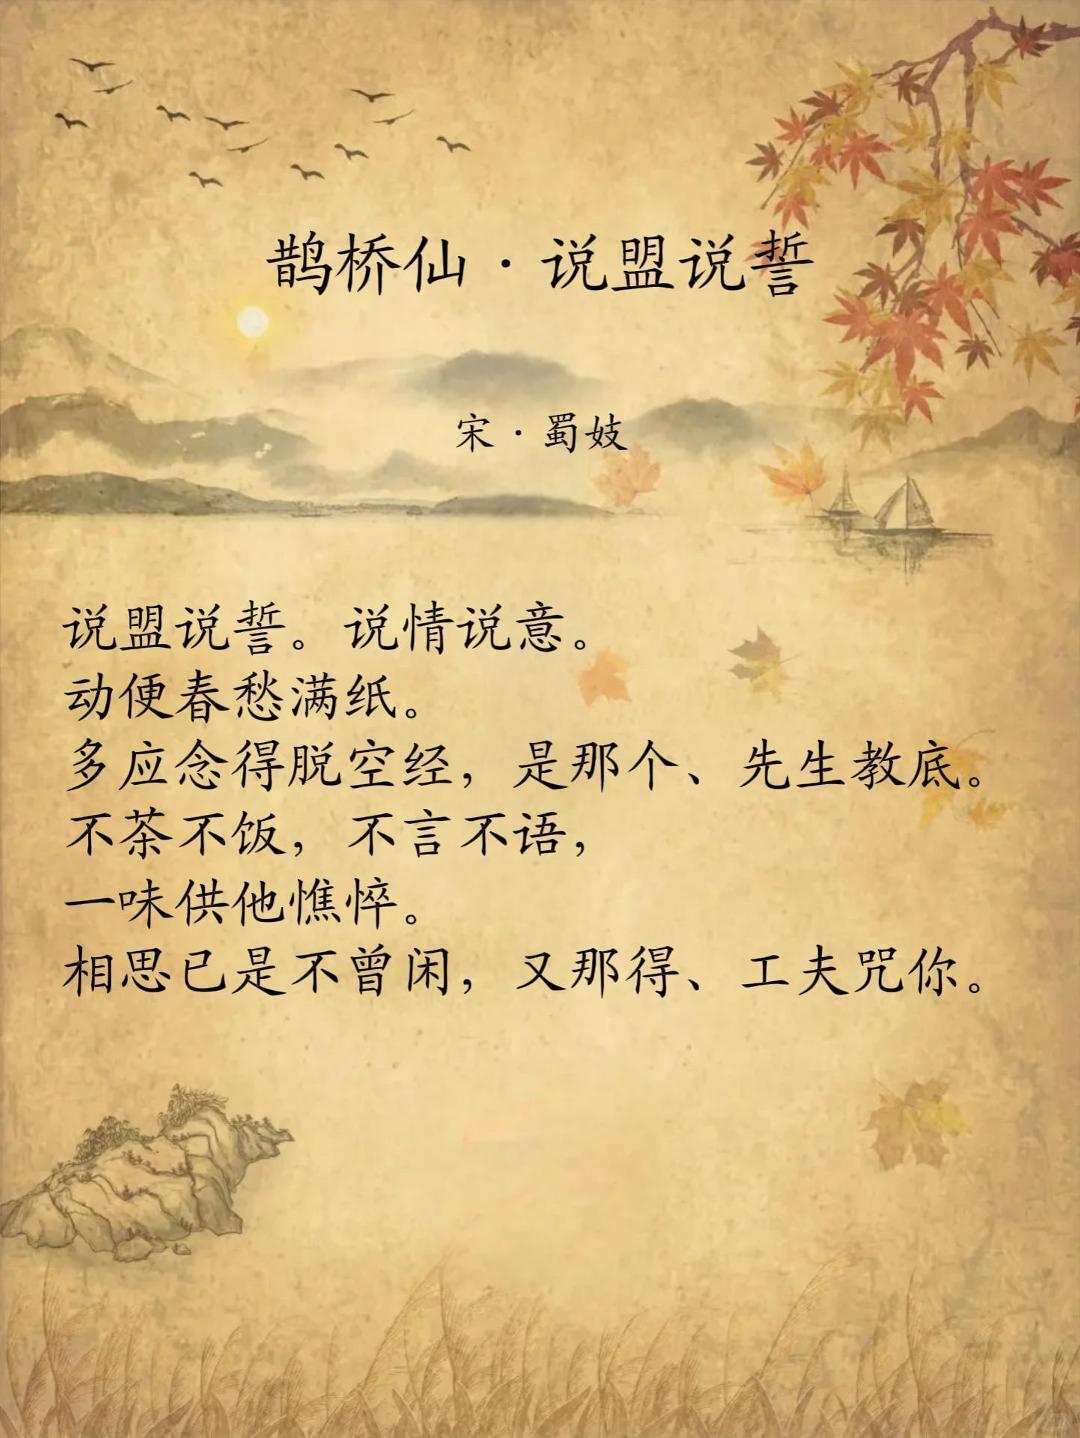 鹊桥仙·说盟说誓
宋·蜀妓
说盟说誓。说情说意。
动便春愁满纸。
多应念得脱空经，是那个、先生教底。
不茶不饭，不言不语，
一味供他憔悴。
相思已是不曾闲，又那得、工夫咒你。